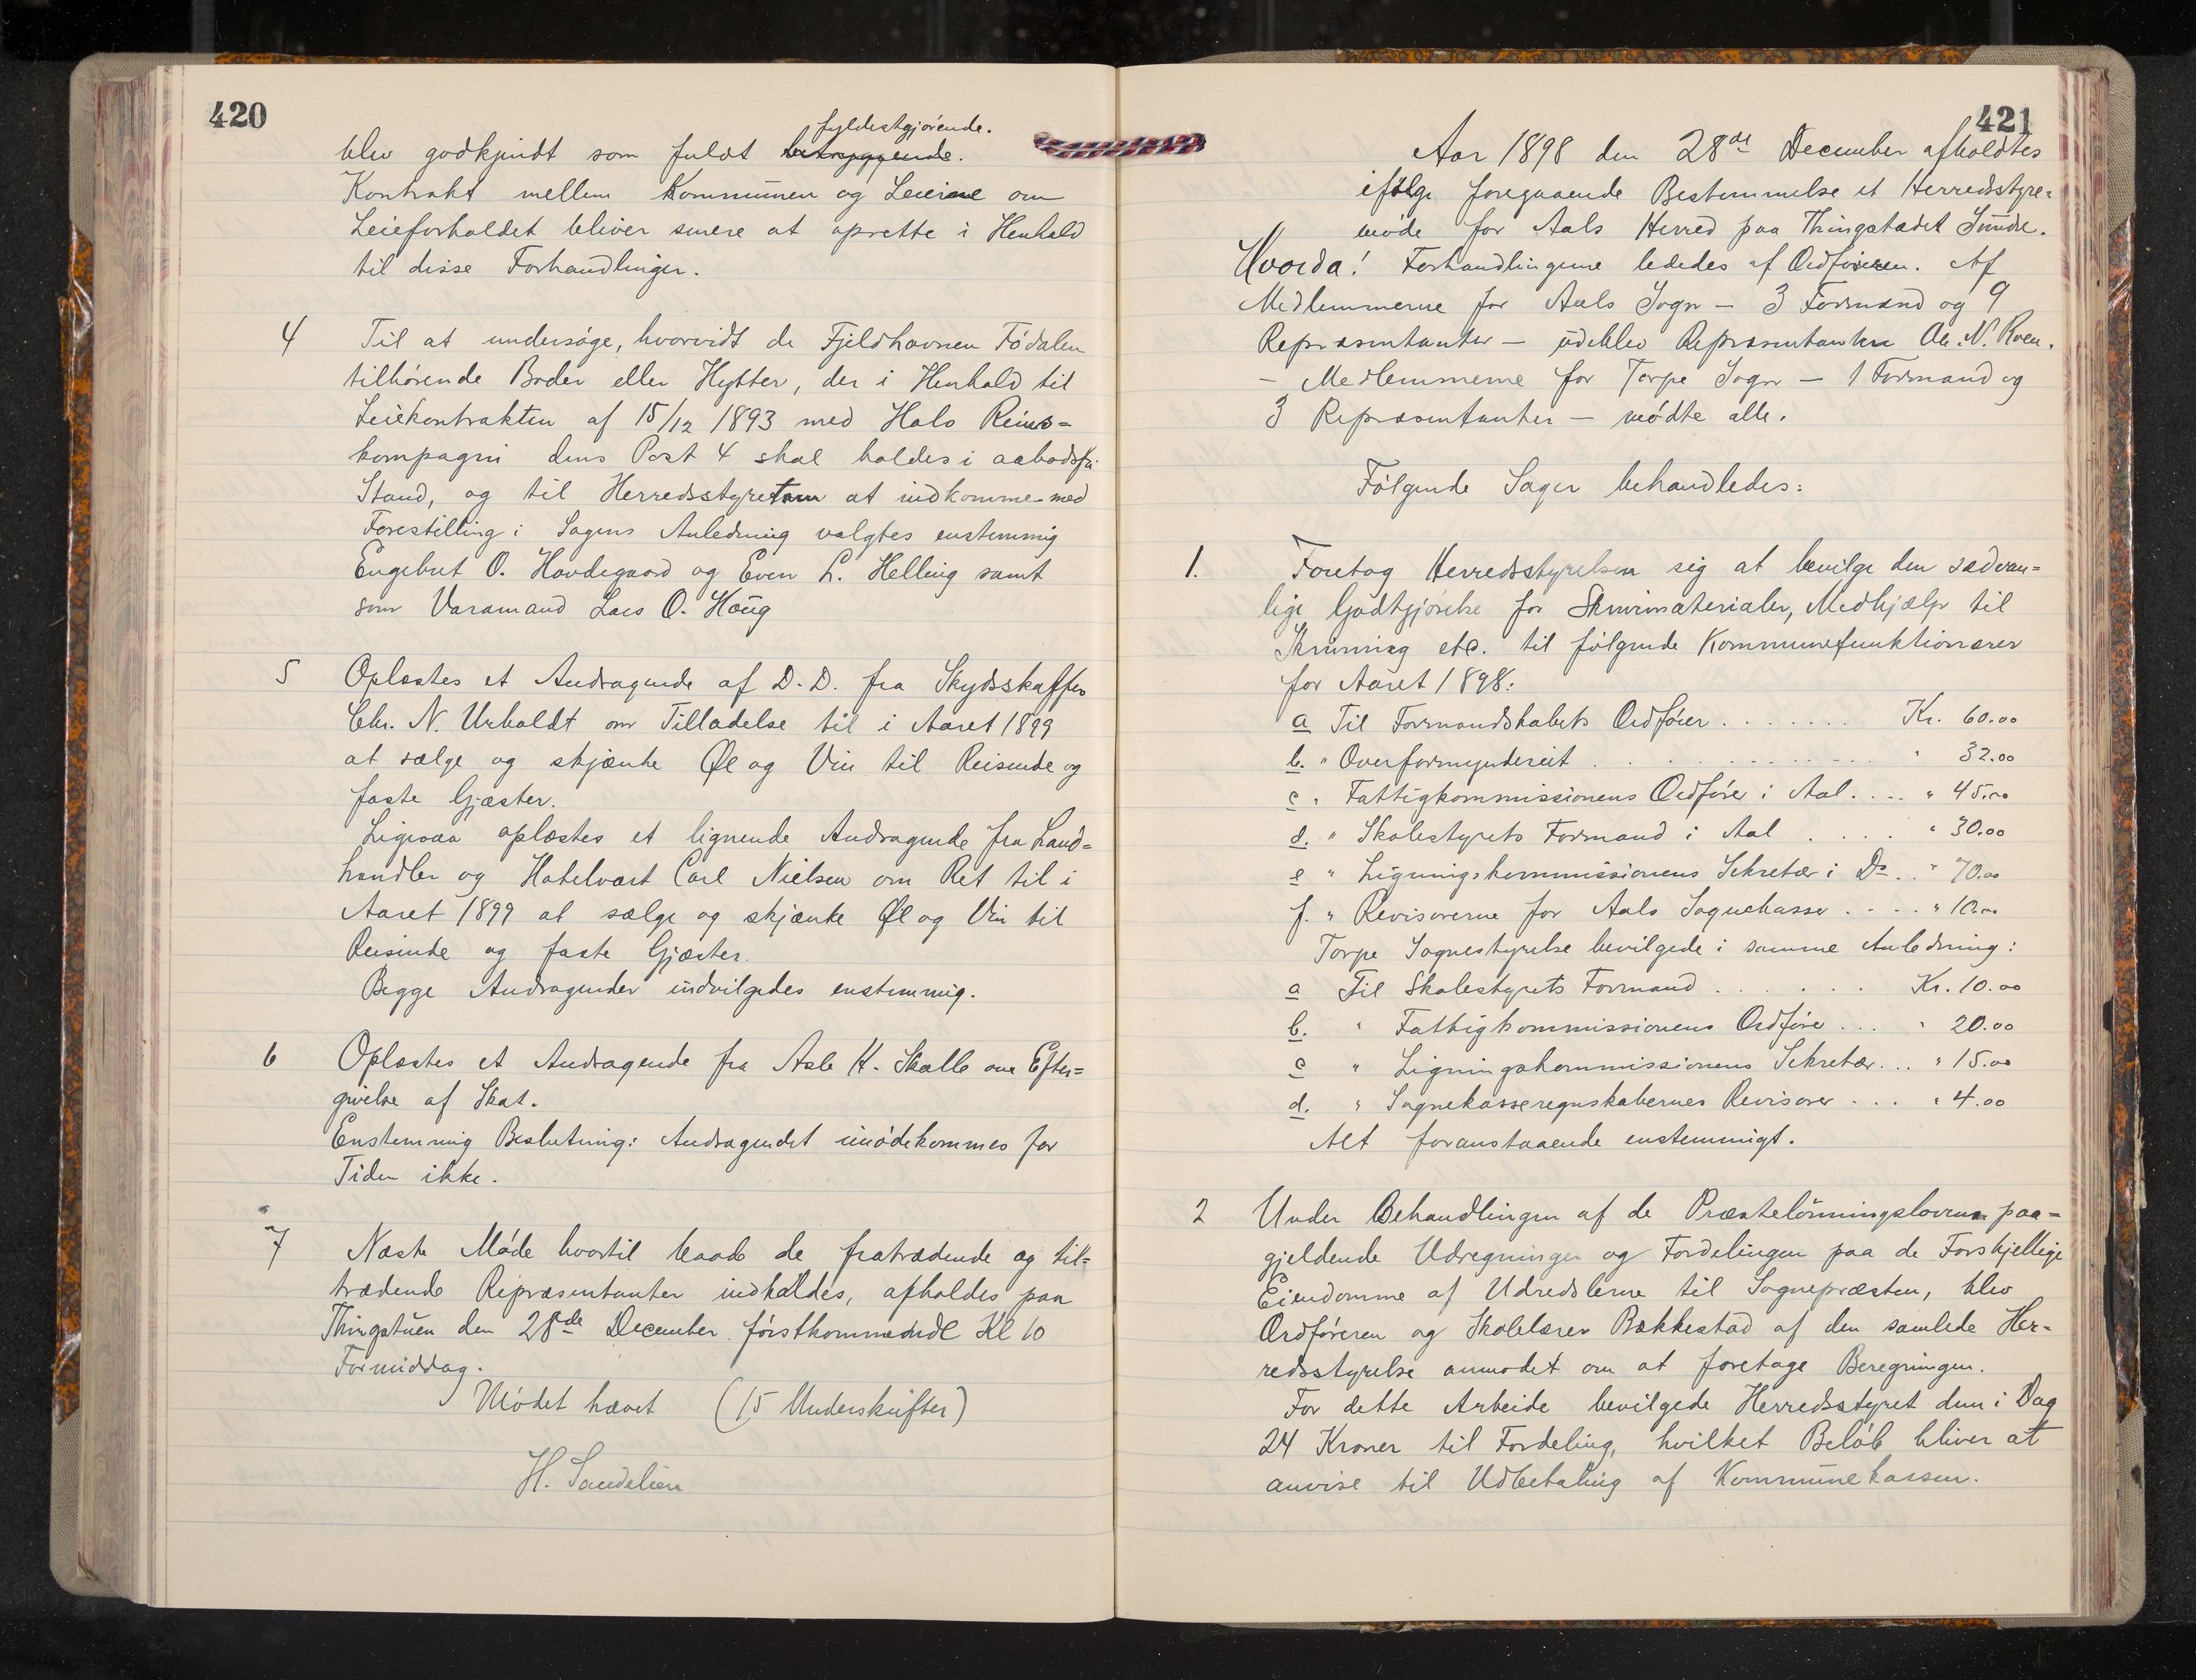 420
fyldestgjørende.
blev godkjendt som fuldt betryggende.
Kontrakt mellem Kommunen og Leierne om
Leieforholdet bliver senere at oprette i Henhold
til disse Forhandlinger.
4 Til at undersøge, hvorvidt de Fjeldhavnen Fødalen
tilhørende Boder eller Hytter, der i Henhold til
Leiekontrakten af 15/12 1893 med Hols Rens=
kompagni dens Post 4 skal holdes i aabodsfri
Stand, og til Herredsstyret at indkomme med
Forestilling i Sagens Anledning valgtes enstemmig
Engebret O. Hovdegaard og Even L. Helling samt
som Varamand Lars O. Haug
5 Oplæstes et Andragende af D.D. fra Skydsskaffer
Chr. N. Urholdt om Tilladelse til i Aaret 1899
at sælge og skjænke Øl og Vin til Reisende og
faste Gjæster.
Ligesaa oplæstes et lignende Andragende fra Land=
handler og Hotelvært Carl Nielsen om Ret til i
Aaret 1899 at sælge og skjænke Øl og Vin til
Reisende og faste Gjæster.
Begge Andragender indvilgedes enstemmig.
6 Oplæstes et Andragende fra Asle K. Skalle om Efter=
givelse af Skat.
Enstemmig Beslutning: Andragendet imødekommes for
Tiden ikke.
7 Næste Møde hvortil baade de fratrædende og til=
trædende Repræsentanter indkaldes, afholdes paa
Thingstuen den 28de December førstkommende Kl 10
Formiddag.
Mødet hævet (15 Underskrifter)
H. Sandelien
421
Aar 1898 den 28de December afholdtes
ifølge foregaaende Bestemmelse et Herredsstyre=
møde for Aals Herred paa Thingstedet Sundre.
Hvorda! Forhandlingerne lededes af Ordføreren. Af
Medlemmerne for Aals Sogn – 3 Formænd og 9
Repræsentanter – udeblev Repræsentanten Ole N. Roen.
– Medlemmerne for Torpe Sogn – 1 Formand og
3 Repræsentanter – mødte alle.
Følgende Sager behandledes:
1. Foretog Herredsstyrelsen sig at bevilge den sædvan=
lige Godtgjørelse for Skrivmaterialer, Medhjælp til
Skrivning etc. til følgende Kommunefunktionærer
for Aaret 1898:
a Til Formandskabets Ordfører . . . . . . . Kr. 60.00
b. " Overformynderiet . . . . . . . . . . " 32.00
c " Fattigkommissionens Ordfører i Aal . . . . " 45.00
d. " Skolestyrets Formand i Aal . . . . " 30.00
e " Ligningskommissionens Sekretær i Do . . " 70.00
f. " Revisorerne for Aals Sognekasser . . . . " 10.00
Torpe Sognestyrelse bevilgede i samme Anledning:
a Til Skolestyrets Formand . . . . . . Kr. 10.00
b. " Fattigkommissionens Ordfører . . . " 20.00
c " Ligningskommissionens Sekretær . . . " 15.00
d. " Sognekasseregnskabernes Revisorer . . . " 4.00
Alt foranstaaende enstemmigt.
2 Under Behandlingen af de Præstelønningsloven paa=
gjeldende Udregninger og Fordelingen paa de Forskjellige
Eiendomme af Udredslerne til Sognepræsten, blev
Ordføreren og Skolelærer Bækkestad af den samlede Her=
redsstyrelse anmodet om at foretage Beregningen.
For dette Arbeide bevilgede Herredsstyret dem i Dag
24 Kroner til Fordeling, hvilket Beløb bliver at
anvise til Udbetaling af Kommunekassen.